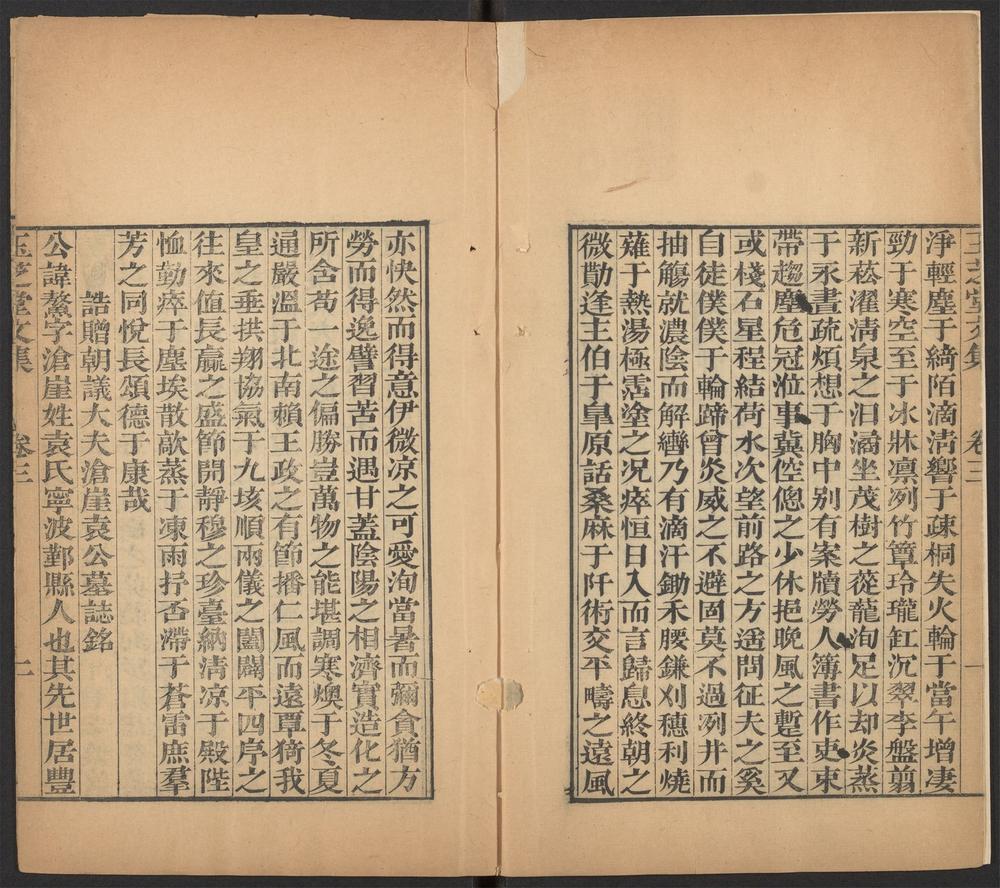 玉芝堂文集 卷三 一
淨輕塵于綺陌滴淸響于疎桐失火輪于當午增凄
勁于寒空至于冰牀凛冽竹簟玲瓏缸沉翠李盤翦
新菘濯淸泉之汩潏坐茂樹之蓯蘢洵足以却炎蒸
于永晝疏煩想于胸中别有案牘勞人簿書作吏束
帶趨塵危冠涖事冀倥傯之少休挹晚風之蹔至又
或棧石星程結荷水次望前路之方遥問征夫之奚
自徒僕僕于輪蹄曾炎威之不避固莫不過冽井而
抽觴就濃陰而解轡乃有滴汗鋤禾腰鎌刈穗利燒
薙于熱湯極霑塗之况瘁恒日入而言歸息終朝之
微勩逢主伯于皐原話桑麻于阡術交平疇之遠風
亦怏然而得意伊微凉之可愛洵當暑而彌貪猶方
勞而得逸譬習苦而遇甘蓋陰陽之相濟實造化之
所含苟一途之偏勝豈萬物之能堪調寒燠于冬夏
逓嚴溫于北南賴王政之有節播仁風而遠覃猗我
皇之垂拱翔協氣于九垓順兩儀之闔闢平四序之
往來值長贏之盛節開靜穆之珍臺納淸凉于殿陛
恤勤瘁于塵埃散歊蒸于凍雨抒否滯于蒼雷庶羣
芳之同悅長頌德于康哉
誥贈朝議大夫滄崖袁公墓誌銘
公諱鰲字滄崖姓袁氏寧波鄞縣人也其先世居豐
玉芝堂文集 卷三